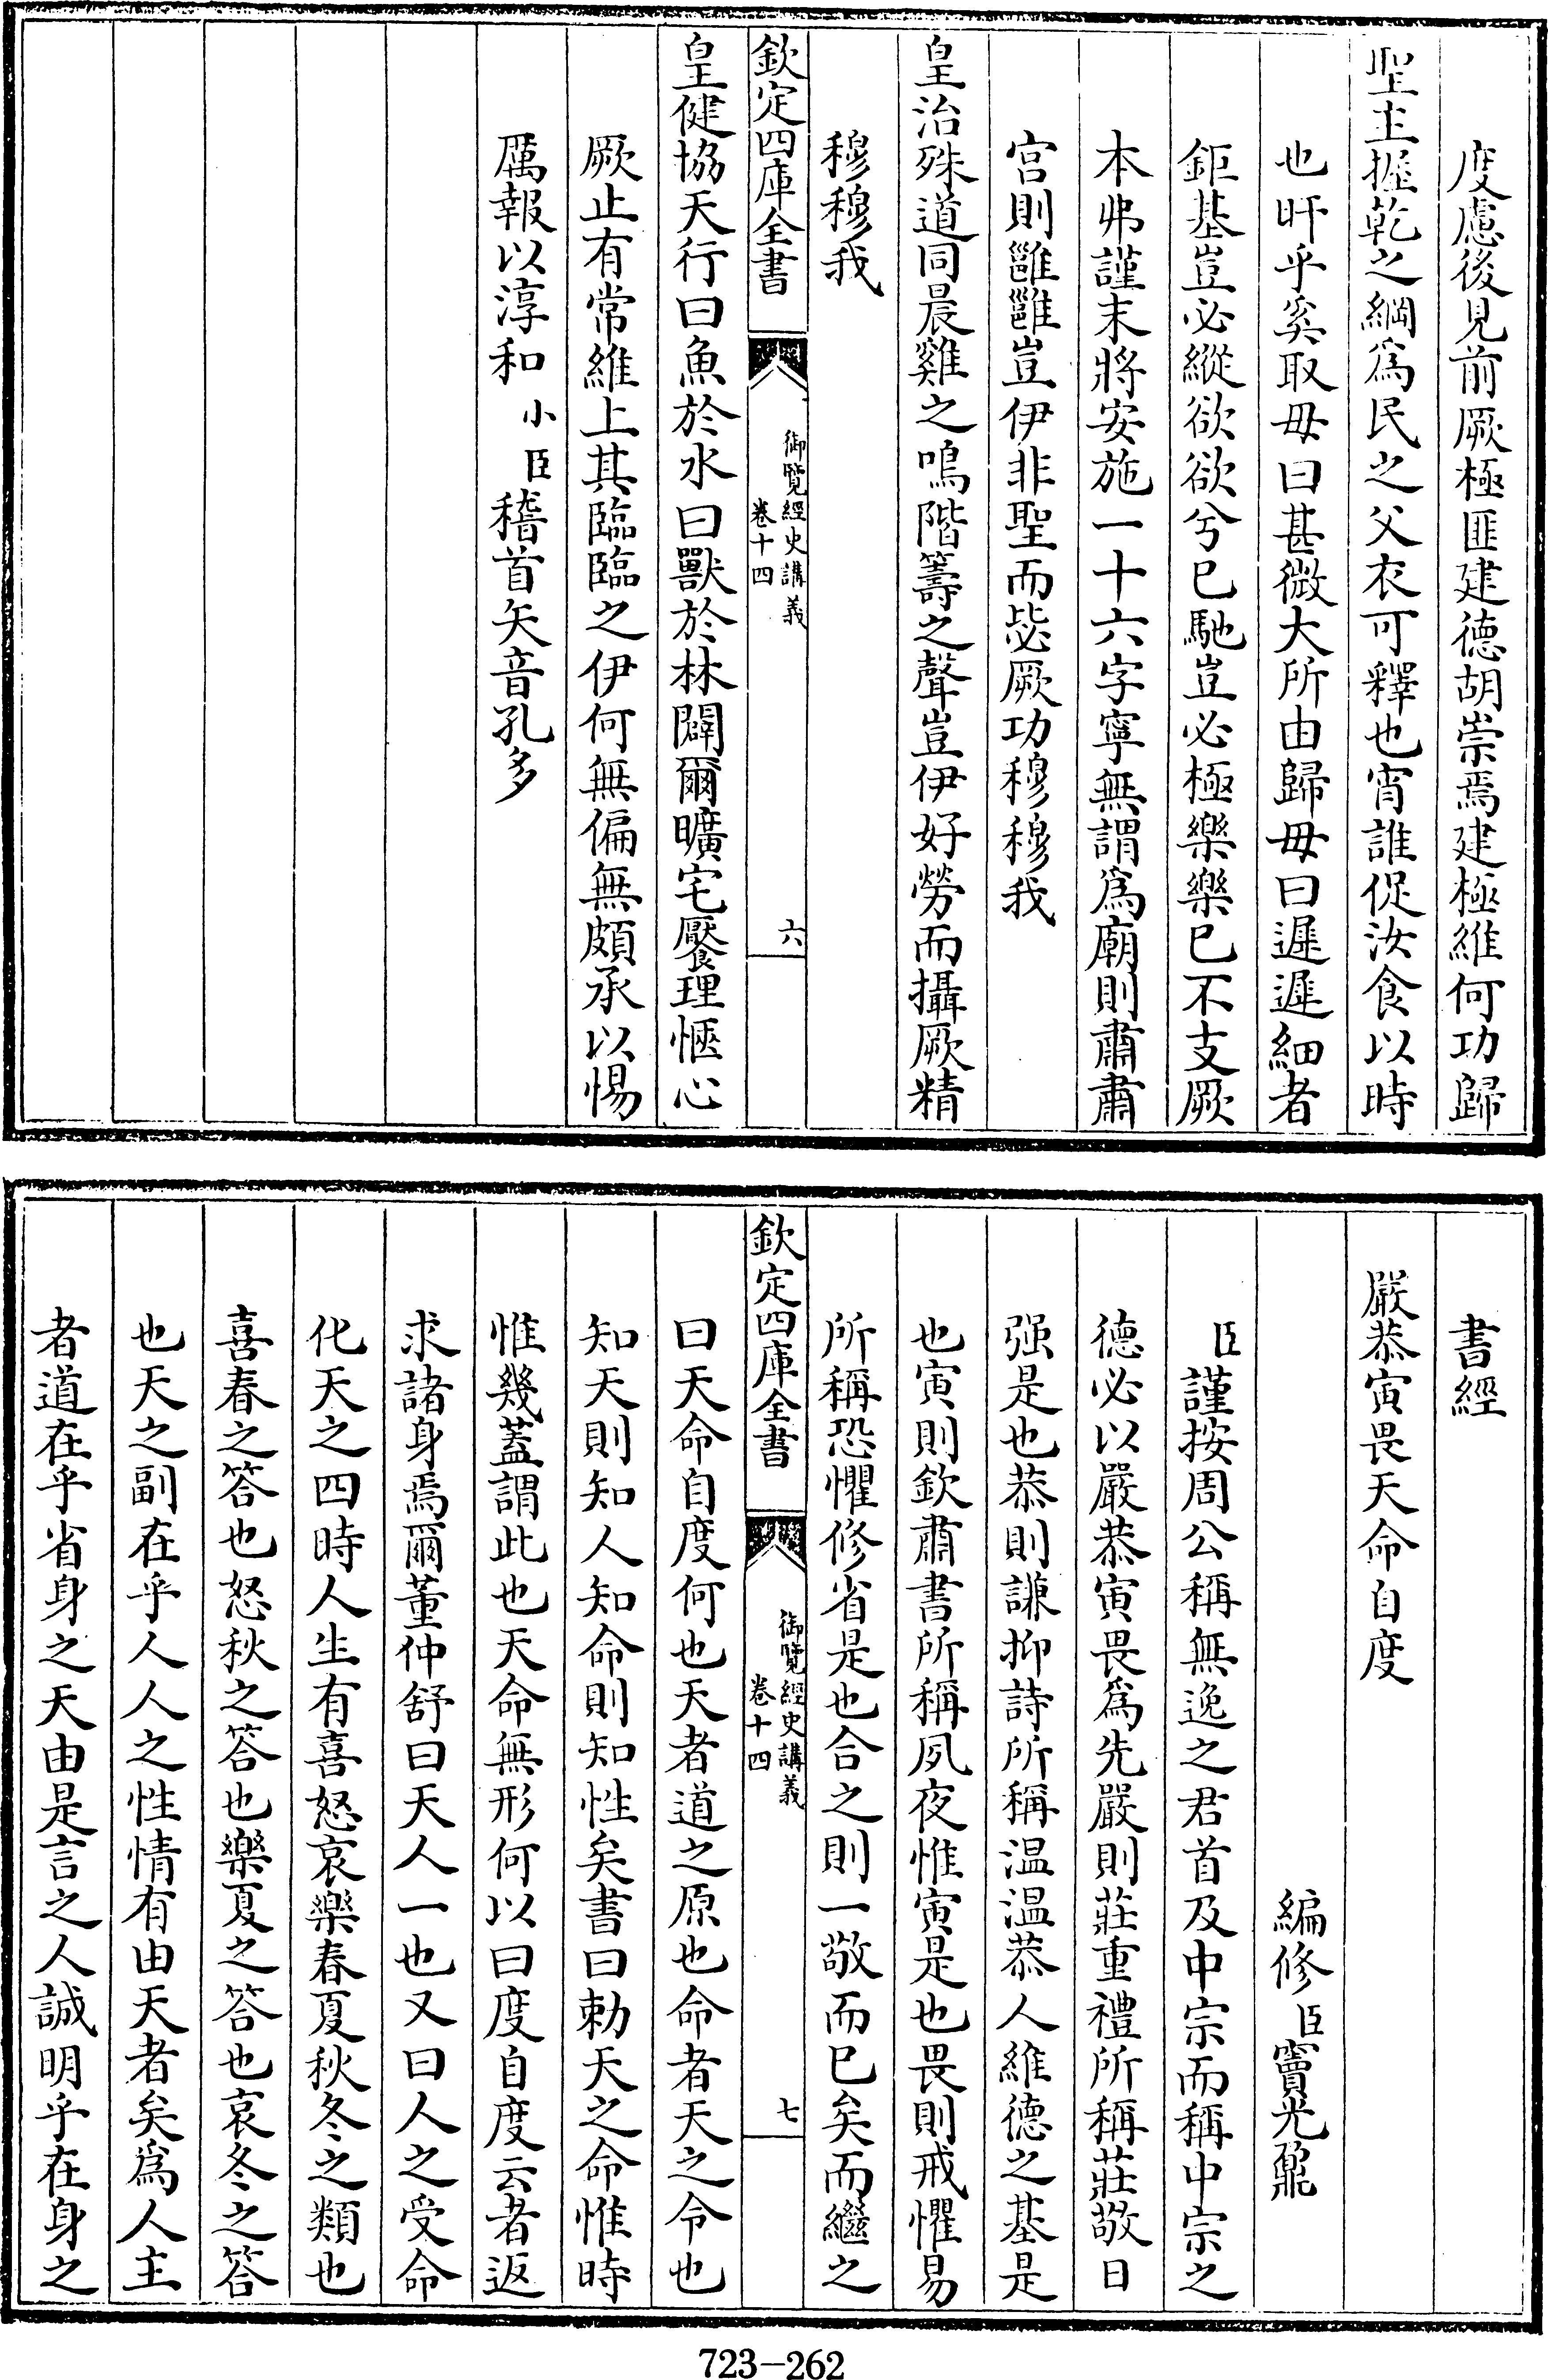 度慮後見前厥極匪建德胡崇焉建極維何功歸
聖主握乾之綱為民之父衣可釋也宵誰促汝食以時
也旰乎奚取毋曰甚微大所由歸毋曰遲遲細者
鉅基豈必縱欲欲兮已馳豈必極樂樂已不支厥
本弗謹末將安施一十六字寧無謂為廟則肅肅
宮則雝雝豈伊非聖而毖厥功穆穆我
皇治殊道同晨雞之鳴階籌之聲豈伊好勞而攝厥精
穆穆我
欽定四庫全書
御覽經史講義
卷十四
六
皇健協天行曰魚於水曰獸於林闢爾曠宅饜理愜心
厥止有常維上其臨臨之伊何無偏無頗承以惕
厲報以淳和小臣稽首矢音孔多
書經
嚴恭寅畏天命自度
編修臣竇光鼐
臣謹按周公稱無逸之君首及中宗而稱中宗之
德必以嚴恭寅畏為先嚴則莊重禮所稱莊敬日
强是也恭則謙抑詩所稱温温恭人維德之基是
也寅則欽肅書所稱夙夜惟寅是也畏則戒懼易
所稱恐懼修省是也合之則一敬而已矣而繼之
欽定四庫全書
御覽經史講義
卷十四
七
曰天命自度何也天者道之原也命者天之令也
知天則知人知命則知性矣書曰勅天之命惟時
惟幾蓋謂此也天命無形何以曰度自度云者返
求諸身焉爾董仲舒曰天人一也又曰人之受命
化天之四時人生有喜怒哀樂春夏秋冬之類也
喜春之答也怒秋之答也樂夏之答也哀冬之答
也天之副在乎人人之性情有由天者矣為人主
者道在乎省身之天由是言之人誠明乎在身之
723-262